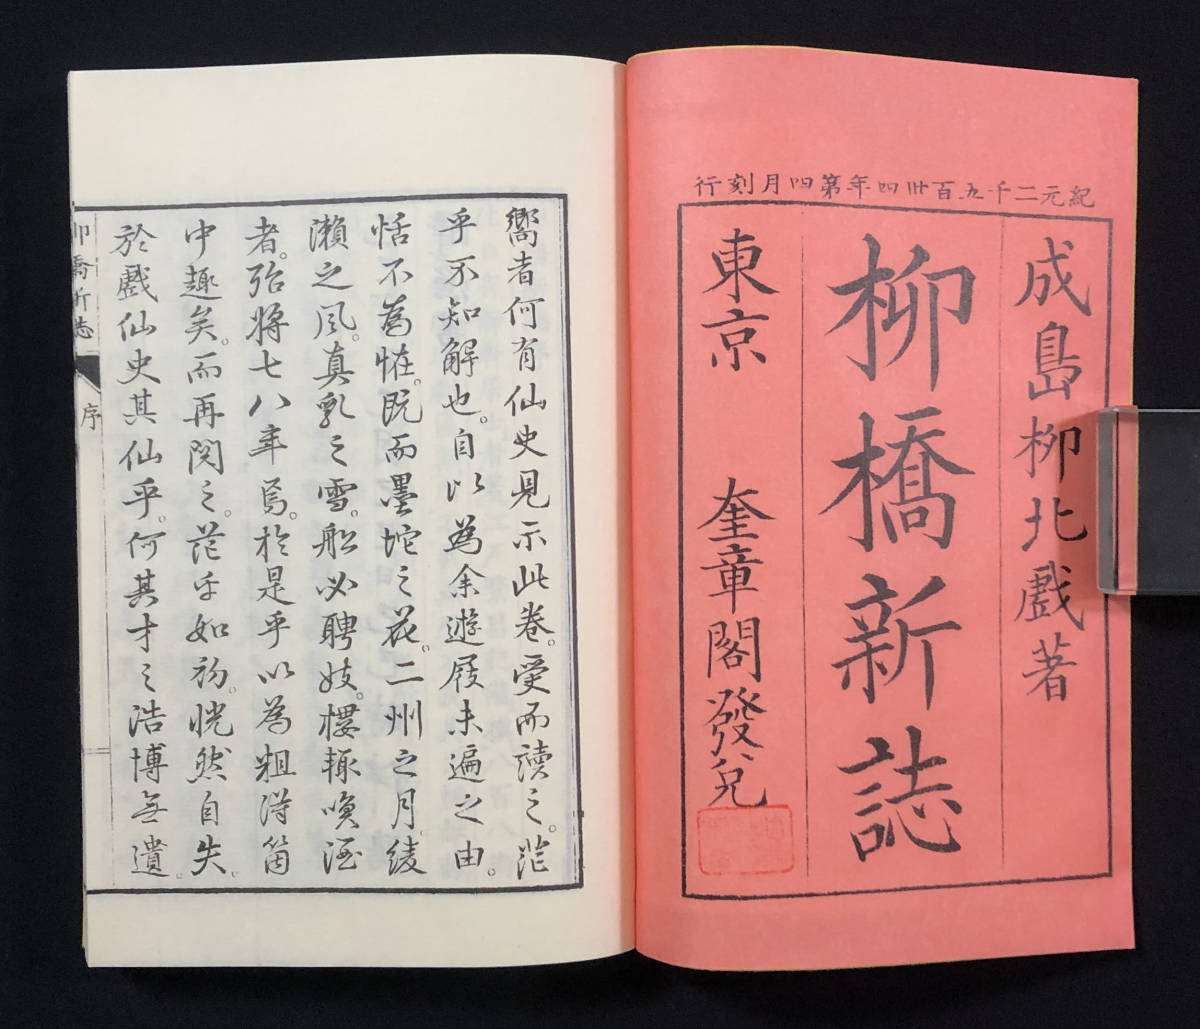 紀元二千五百卅四年第四月刻行
成島柳北戲著
柳橋新誌
東京 奎章閣發兌
嚮者何有仙史見示此卷。受而讀之。茫
乎不知解也。自以為余遊屐未遍之由。
恬不為怪。既而墨坨之花。二州之月。綾
瀨之風。真乳之雪。船必聘妓。樓輙喚酒
者。殆將七八年焉。於是乎以為粗得箇
中趣矣。而再閱之。茫乎如初。恍然自失。
於戲仙史其仙乎。何其才之浩博無遺。
柳橋新誌
序